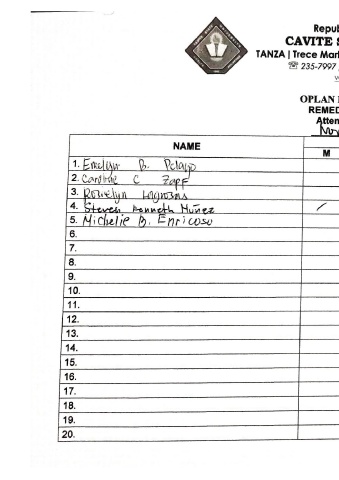 Repu
CAVITE S
TANZA | Trece Mar
☏ 235-7997
OPLAN
REMED
Atten
NAME
M
1. Evelyn B. Pelayo
2. Caroline C Zapf
3. Roselyn Lagrosas
4. Steven Kenneth Muñez /
5. Michelle B. Enricoso
6.
7.
8.
9.
10.
11.
12.
13.
14.
15.
16.
17.
18.
19.
20.